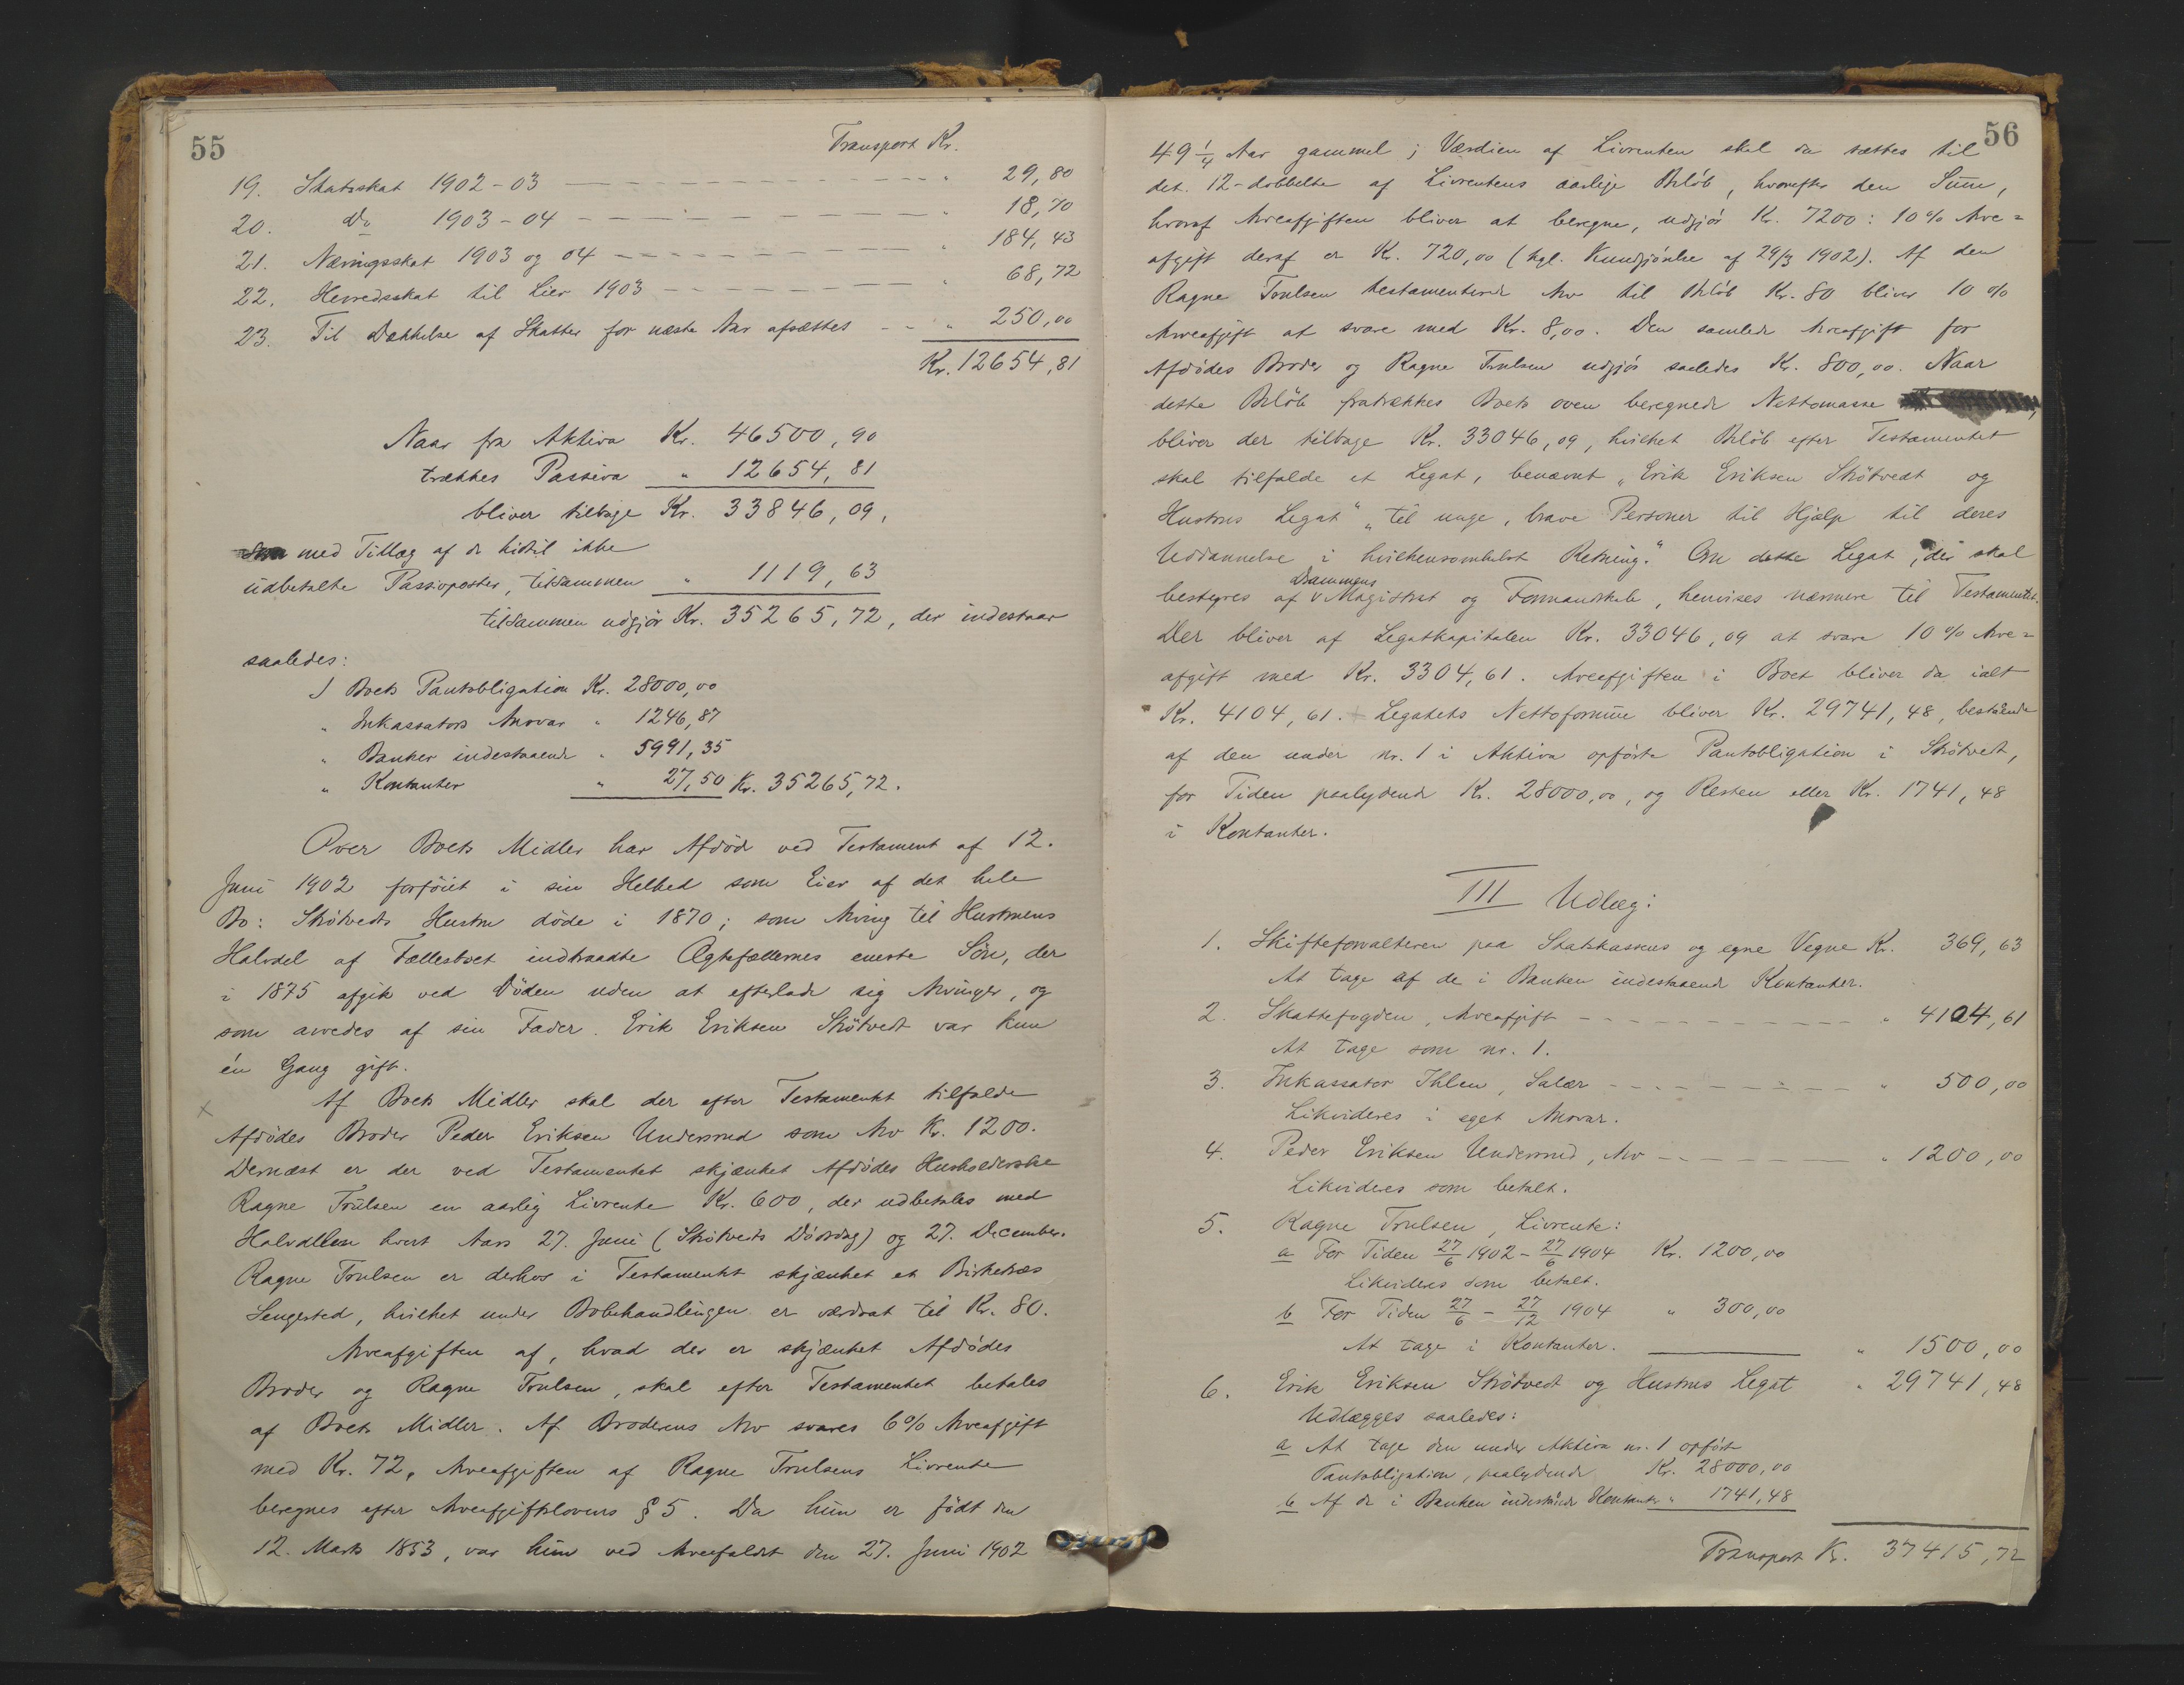 55
Transport Kr.
19. Statsskat 1902-03 " 29,80
20. Do 1903-04 " 18,70
21. Næringsskat 1903 og 04 " 184,43
22. Herredsskat til Lier 1903 " 68,72
23. Til Dækkelse af Skatter for næste Aar afsættes " 250,00
Kr. 12654,81
Naar fra Aktiva Kr. 46500,90
trækkes Passiva " 12654,81
bliver tilbage Kr. 33846,09,
med Tillæg af de hidtil ikke
udbetalte Passivposter, tilsammen " 1119,63
tilsammen udgjør Kr. 35265,72, der indestaar
saaledes:
I Boets Pantobligation Kr. 28000,00
" Inkassators Ansvar " 1246,87
" Banker indestaaende " 5991,35
" Kontanter " 27,50 Kr. 35265,72.
Over Boets Midler har Afdøde ved Testament af 12.
Juni 1902 forføiet i sin Helhed som Eier af det hele
Bo: Skötvedts Hustru døde i 1870; som Arving til Hustruens
Halvdel af Fællesboet indtraadte Ægtefællernes eneste Søn, der
i 1875 afgik ved Døden uden at efterlade sig Arvinger, og
som arvedes af sin Fader. Erik Eriksen Skötvedt var kun
én Gang gift.
x Af Boets Midler skal der efter Testamentet tilfalde
Afdødes Broder Peder Eriksen Undersrud som Arv Kr. 1200.
Dernæst er der ved Testamentet skjænket Afdødes Husholderske
Ragne Trulsen en aarlig Livrente Kr. 600, der udbetales med
Halvdelen hvert Aars 27. Juni (Skötvedts Dødsdag) og 27. December.
Ragne Trulsen er derhos i Testamentet skjænket et Birketræs
Sengested, hvilket under Bobehandlingen er værdsat til Kr. 80.
Arveafgiften af, hvad der er skjænket Afdødes
Broder og Ragne Trulsen, skal efter Testamentet betales
af Boets Midler. Af Broderens Arv svares 6% Arveafgift
med Kr. 72, Arveafgiften af Ragne Trulsens Livrente
beregnes efter Arveafgiftslovens § 5. Da hun er født den
12. Marts 1853, var hun ved Arvefaldet den 27. Juni 1902
56
49 1/4 Aar gammel; Værdien af Livrenten skal da sættes til
det 12-dobbelte af Livrentens aarlige Beløb, hvorefter den Sum,
hvoraf Arveafgiften bliver at beregne, udgjør Kr. 7200: 10% Arve=
afgift deraf er Kr. 720,00 (kgl. Kundgjørelse af 29/3 1902). Af den
Ragne Trulsen testamenterede Arv til Beløb Kr. 80 bliver 10%
Arveafgift at svare med Kr. 8,00. Den samlede Arveafgift for
Afdødes Broder og Ragne Trulsen udgjør saaledes Kr. 800,00. Naar
dette Beløb fratrækkes Boets oven beregnede Nettomasse
bliver der tilbage Kr. 33046,09, hvilket Beløb efter Testamentet
skal tilfalde et Legat, benævnt „Erik Eriksen Skötvedt og
Hustrus Legat" „til unge, brave Personer til Hjælp til deres
Uddannelse i hvilkensomhelst Retning." Om dette Legat, der skal
bestyres af Drammens Magistrat og Formandskab, henvises nærmere til Testamentet.
Der bliver af Legatkapitalen Kr. 33046,09 at svare 10% Arve=
afgift med Kr. 3304,61. Arveafgiften i Boet bliver da ialt
Kr. 4104,61. Legatets Nettoformue bliver Kr. 29741,48, bestående
af den under nr. 1 i Aktiva opførte Pantobligation i Skötvedt,
for Tiden paalydende Kr. 28000,00, og Resten eller Kr. 1741,48
i Kontanter.
III Udlæg:
1. Skifteforvalteren paa Statskassens og egne Vegne Kr. 369,63
At tage af de i Banken indestaaende Kontanter.
2. Skattefogden, Arveafgift " 4104,61
At tage som nr. 1.
3. Inkassator Ihlen, Salær " 500,00
Likvideres i eget Ansvar.
4. Peder Eriksen Undersrud, Arv " 1200,00
Likvideres som betalt.
5. Ragne Trulsen, Livrente:
a For Tiden 27/6 1902 - 27/6 1904 Kr. 1200,00
Likvideres som betalt.
b For Tiden 27/6 - 27/12 1904 " 300,00
At tage i Kontanter. " 1500,00
6. Erik Eriksen Skötvedt og Hustrus Legat " 29741,48
Udlægges saaledes:
a At tage den under Aktiva nr. 1 opført
Pantobligation, paalydende Kr. 28000,00
b Af de i Banken indestående Kontanter " 1741,48
Transport Kr. 37415,72